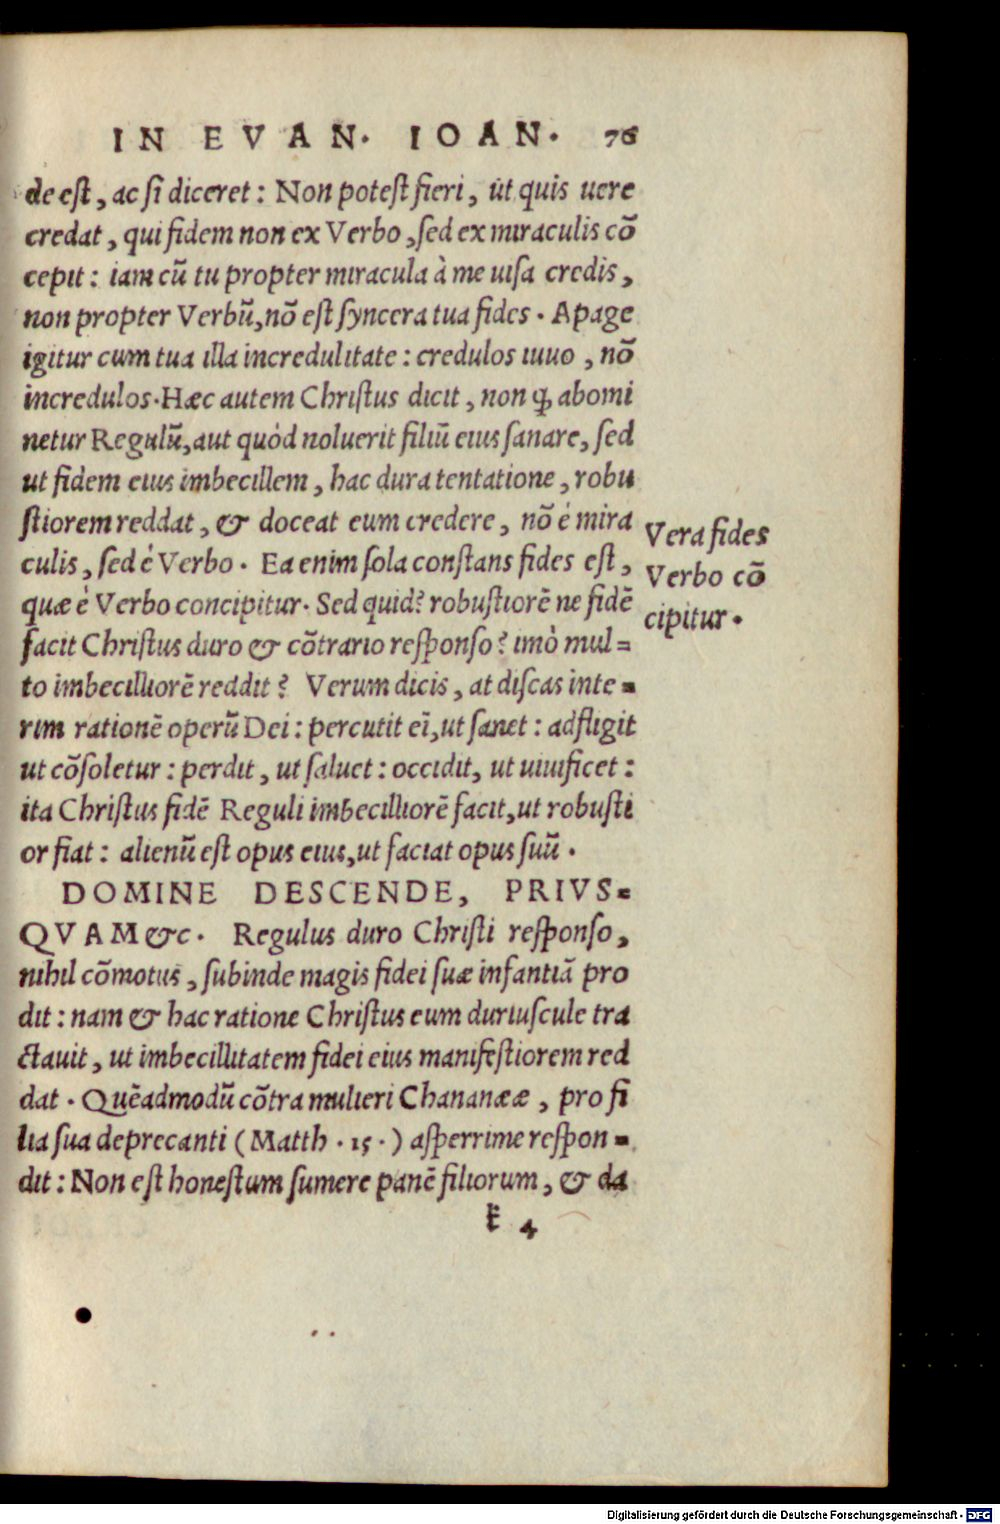 IN EVAN. IOAN. 76
de est, ac si diceret: Non potest fieri, ut quis uere
credat, qui fidem non ex Verbo, sed ex miraculis cō
cepit: iam cū tu propter miracula à me uisa credis,
non propter Verbū, nō est syncera tua fides. Apage
igitur cum tua illa incredulitate: credulos iuuo, nō
incredulos. Hæc autem Christus dicit, non ꝙ abomi
netur Regulū, aut quòd noluerit filiū eius sanare, sed
ut fidem eius imbecillem, hac dura tentatione, robu
stiorem reddat, & doceat eum credere, nō è mira
culis, sed è Verbo. Ea enim sola constans fides est,
quæ è Verbo concipitur. Sed quid? robustiorē ne fidē
facit Christus duro & cōtrario responso? imò mul=
to imbecilliorē reddit? Verum dicis, at discas inte=
rim rationē operū Dei: percutit eī, ut sanet: adfligit
ut cōsoletur: perdit, ut saluet: occidit, ut uiuificet:
ita Christus fidē Reguli imbecilliorē facit, ut robusti
or fiat: alienū est opus eius, ut faciat opus suū.
DOMINE DESCENDE, PRIVS=
QVAM &c. Regulus duro Christi responso,
nihil cōmotus, subinde magis fidei suæ infantiā pro
dit: nam & hac ratione Christus eum duriuscule tra
ctauit, ut imbecillitatem fidei eius manifestiorem red
dat. Quēadmodū cōtra mulieri Chananææ, pro fi
lia sua deprecanti (Matth. 15.) asperrime respon=
dit: Non est honestum sumere panē filiorum, & da
k 4
Vera fides
Verbo cō
cipitur.
Digitalisierung gefördert durch die Deutsche Forschungsgemeinschaft - DFG